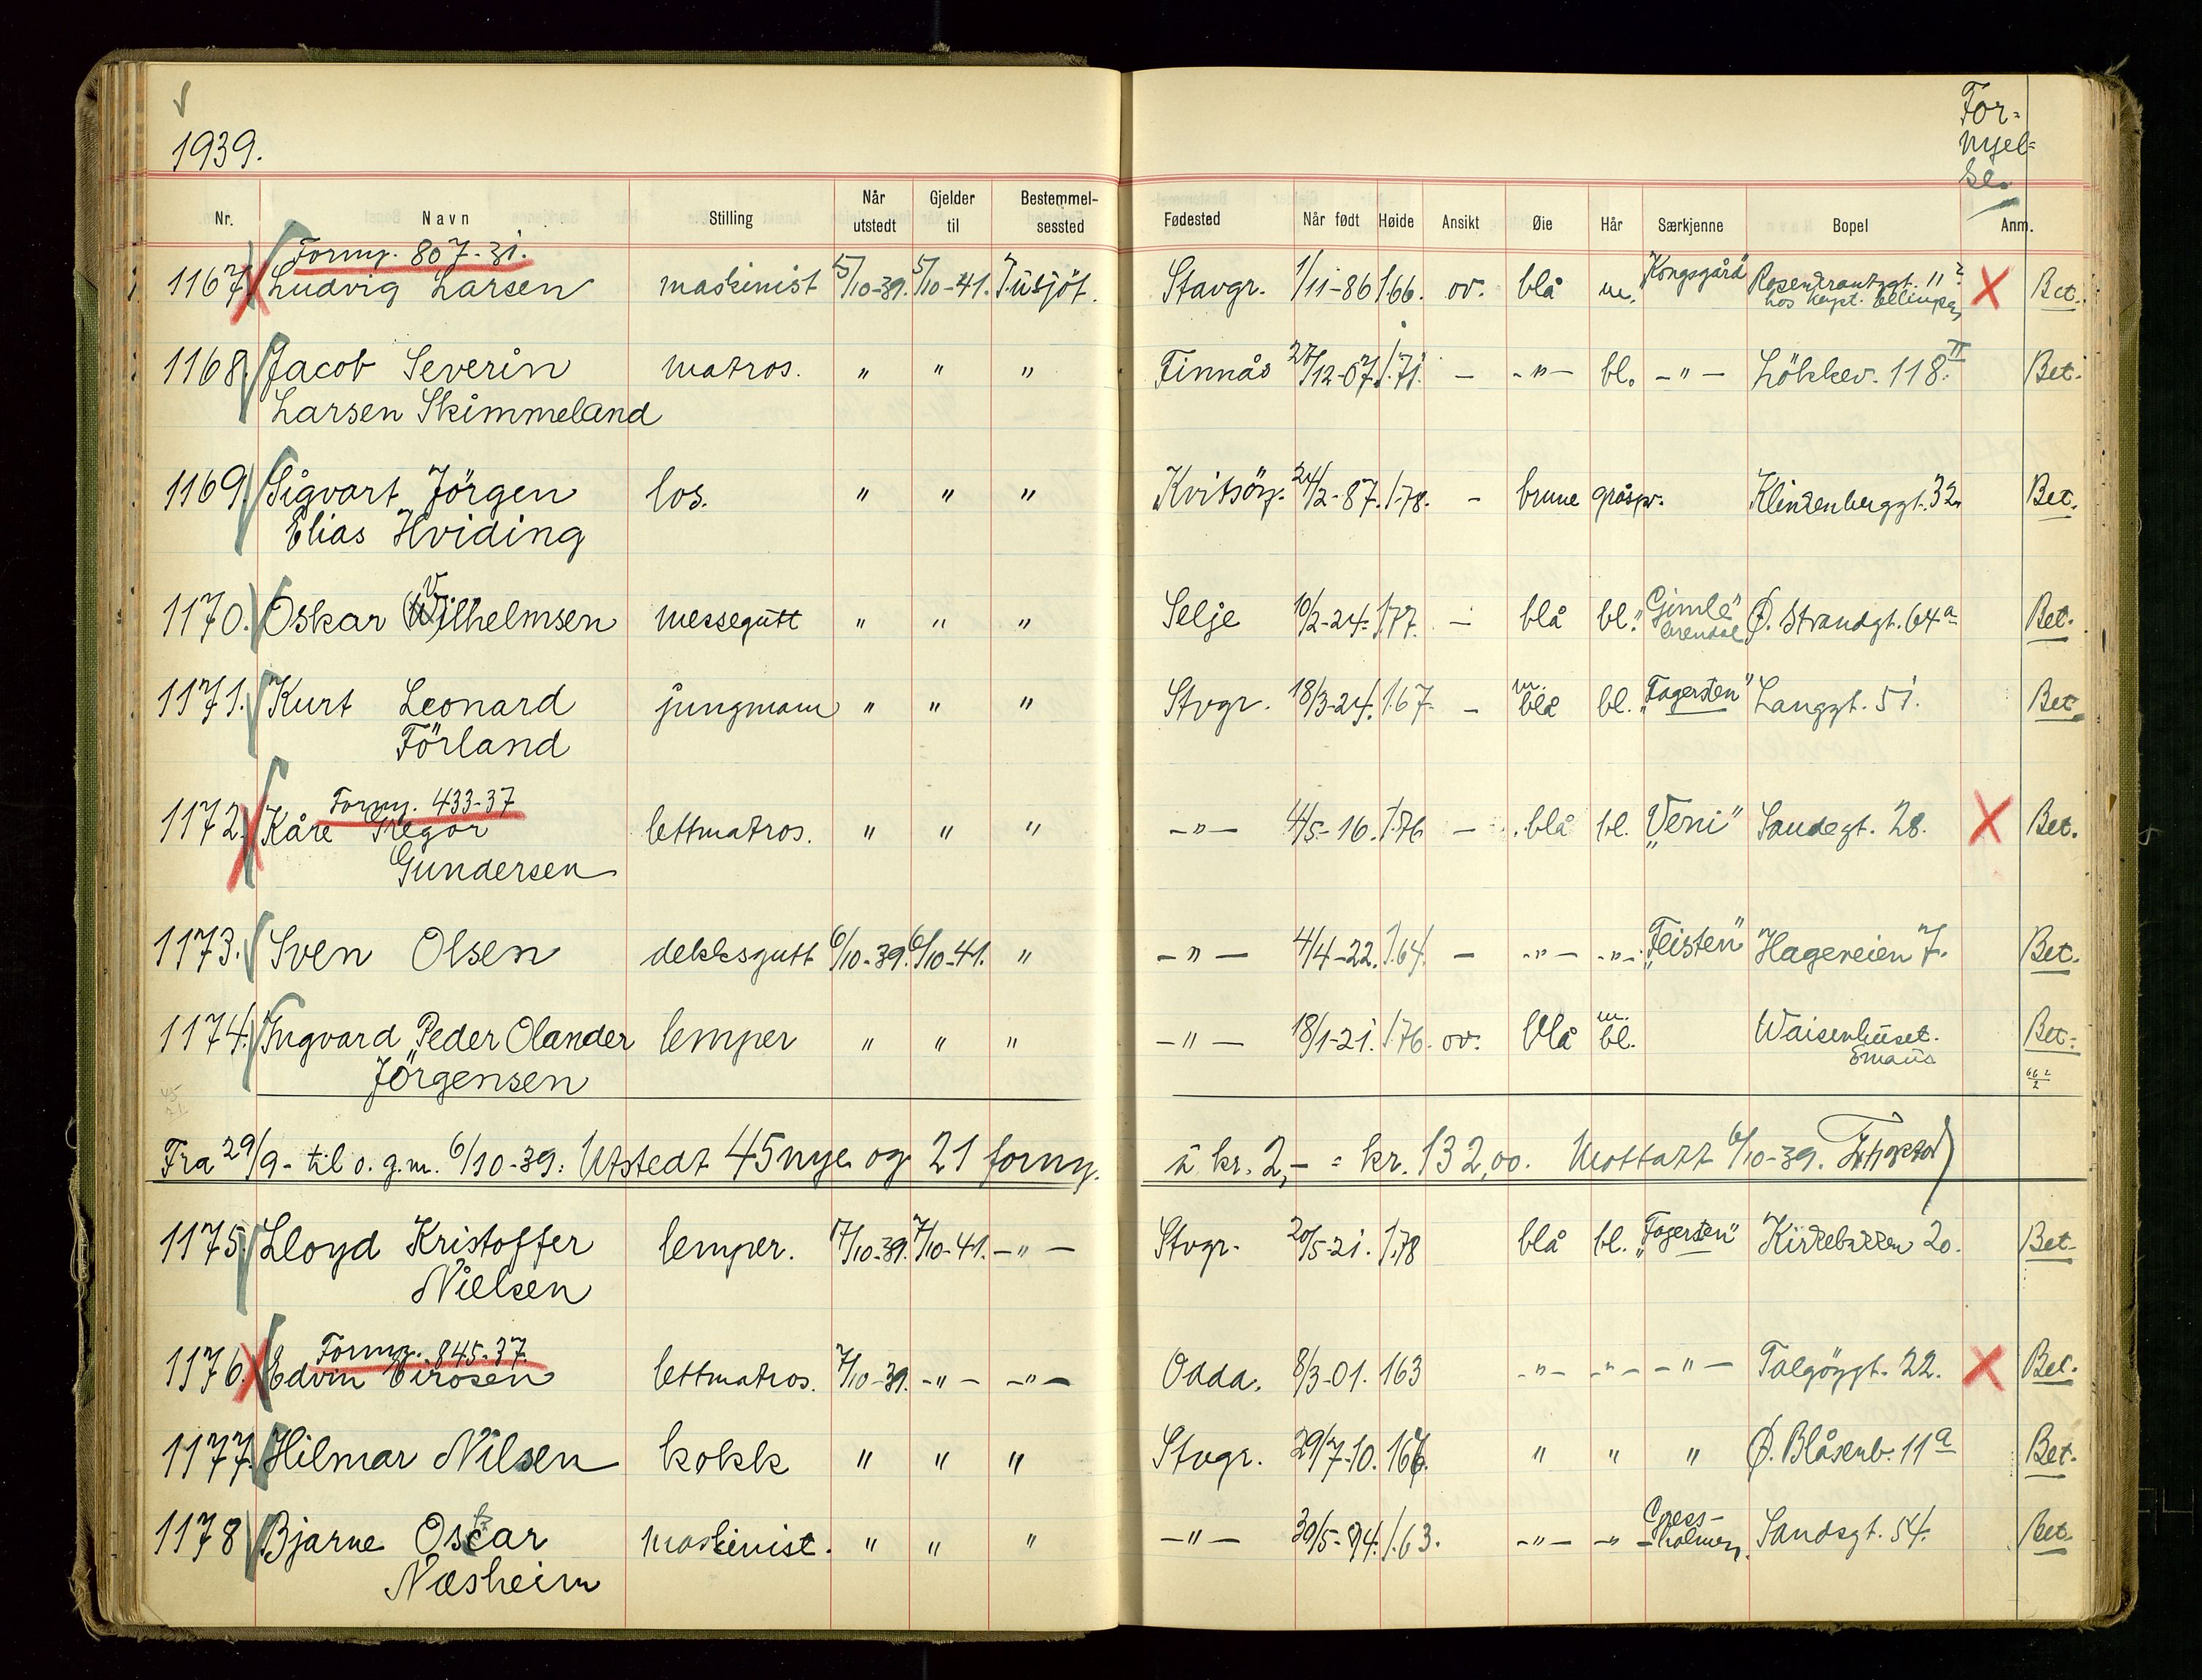 1939.
For=
nyel=
se.
Nr. Navn Stilling Når utstedt Gjelder til Bestemmel-sessted Fødested Når født Høide Ansikt Øie Hår Særkjenne Bopel Anm.
Forny. 807-31.
1167. Ludvig Larsen maskinist 5/10-39. 5/10-41. T. usjöf. Stavgr. 1/11-86 1.66. ov. blå m. "Kongsgård" Rosenkrantzgt. 11 Bet.
hos kapt.
1168. Jacob Severin matros. " " " Finnås 27/12-07. 1.71. - -"- bl. -"- Lökkev. 118 II Bet.
Larsen Skimmeland
1169. Sigvart Jörgen los. " " " Kvitsöy. 24/2-87. 1.78. - brune gråspr. Klinkenberggt. 32. Bet.
Elias Hviding
1170. Oskar Vilhelmsen messegutt " " " Selje 10/2-24. 1.77. - blå bl. "Gimle" Ø. Strandgt. 64a Bet.
Arendal
1171. Kurt Leonard jungmann " " " Stvgr. 18/3-24. 1.67. - m. blå bl. "Fagersten" Langgt. 51. Bet.
Förland
Forny. 433-37
1172. Kåre Gregor lettmatros. " " " -"- 4/5-16. 1.76 - blå bl. "Veni" Sandegt. 28. Bet.
Gundersen
1173. Sven Olsen dekksgutt 6/10-39. 6/10-41. " -"- 4/4-22. 1.64. - -"- -"- "Feisten" Hageveien 7. Bet.
1174. Ingvard Peder Olander lemper " " " -"- 18/1-21. 1.76. ov. blå m. bl. Waisenhuset. Bet.
Jörgensen Emaus
Fra 29/9- til o. g. m. 6/10-39: Utstedt 45 nye og 21 forny. à kr. 2,- = kr. 132,00. Mottatt 6/10-39.
1175. Lloyd Kristoffer lemper. 7/10-39. 7/10-41. -"- Stvgr. 20/5-21. 1.78 blå bl. "Fagersten" Kirkebakken 20. Bet.
Nielsen
Forny. 845-37.
1176. Edvin Eirosen lettmatros. 7/10-39. -"- -"- Odda. 8/3-01. 163 -"- -"- -"- Talgöygt. 22. Bet.
1177. Hilmar Nilsen kokk " " " Stvgr. 29/7-10. 166. " " " Ø. Blåsenb. 11a Bet.
1178 Bjarne Oskar maskinist. " " " -"- 30/5-94. 1.63. -"- -"- Gress-holmen. Sandsgt. 54. Bet.
Næsheim